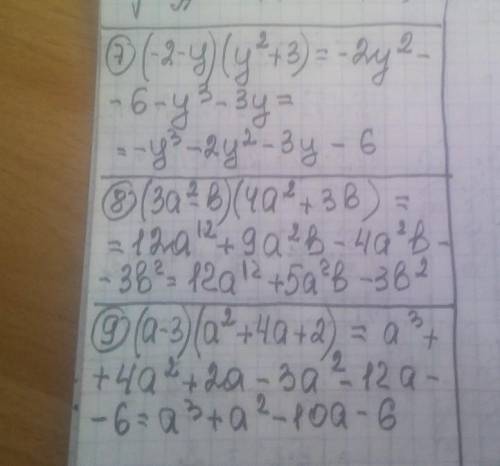 7 (-2-y)(y²+3) = -2y² -
- 6 - y³ - 3y =
= -y³ - 2y² - 3y - 6
8 (3a²-b)(4a²+3b) =
= 12a¹² + 9a²b - 4a²b -
- 3b² = 12a¹² + 5a²b - 3b²
9 (a-3)(a²+4a+2) = a³ +
+ 4a² + 2a - 3a² - 12a -
- 6 = a³ + a² - 10a - 6